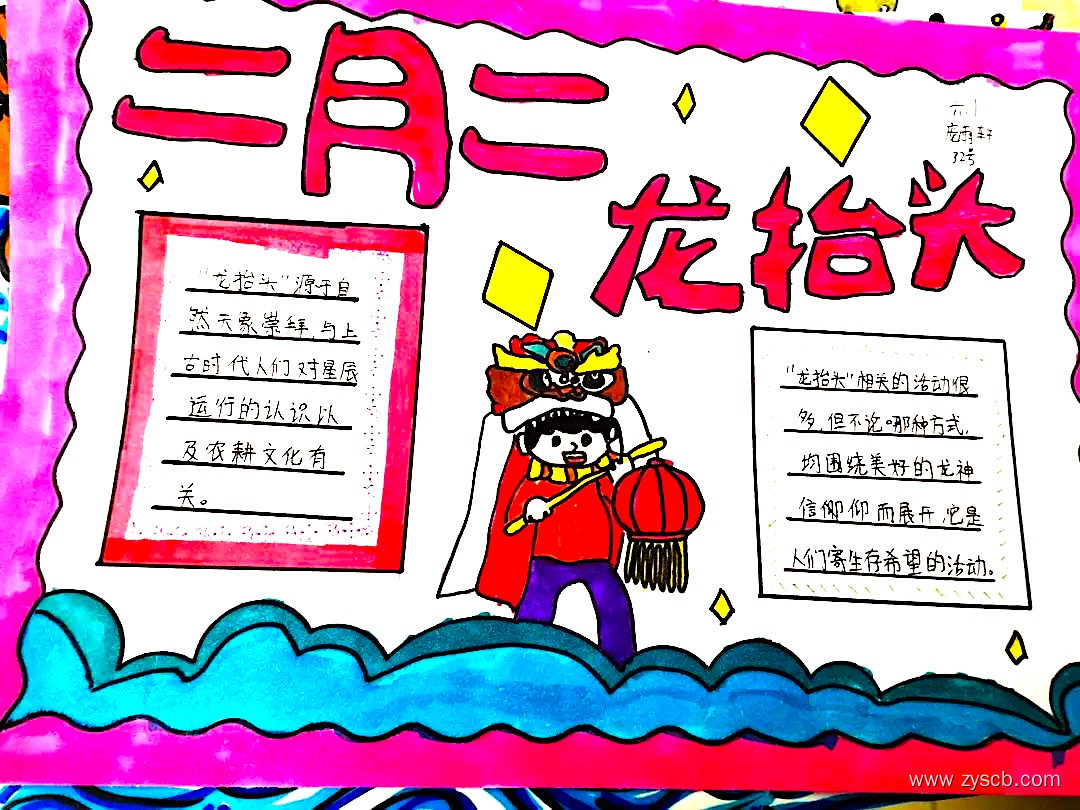 二月二
龙抬头
六1
32号
"龙抬头"源于自
然天象崇拜,与上
古时代人们对星辰
运行的认识以
及农耕文化有
关。
"龙抬头"相关的活动很
多,但不论哪种方式,
均围绕美好的龙神
信仰仰而展开,它是
人们寄生存希望的活动。
www.zyscb.com